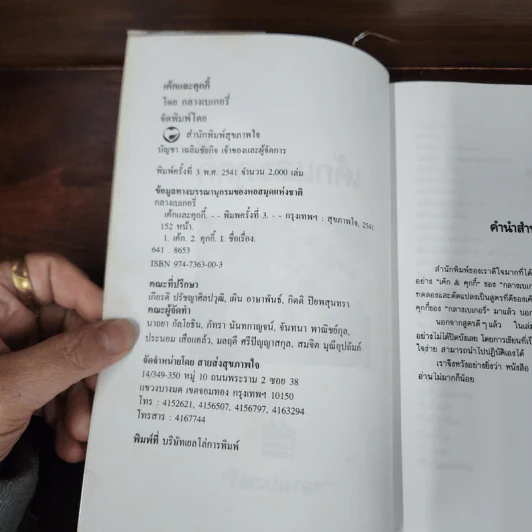 เค้กและคุกกี้
โดย กลางเบเกอรี่
จัดพิมพ์โดย
สำนักพิมพ์สุขภาพใจ
บัญชา เฉลิมชัยกิจ เจ้าของและผู้จัดการ
พิมพ์ครั้งที่ 3 พ.ศ. 2541 จำนวน 2,000 เล่ม
ข้อมูลทางบรรณานุกรมของหอสมุดแห่งชาติ
กลางเบเกอรี่
เค้กและคุกกี้. - - พิมพ์ครั้งที่ 3. - - กรุงเทพฯ : สุขภาพใจ, 2541
152 หน้า.
1. เค้ก. 2. คุกกี้. I. ชื่อเรื่อง.
641 . 8653
ISBN 974-7363-00-3
คณะที่ปรึกษา
เกียรติ ปรัชญาศิลปวุฒิ, เผิน อาษาพันธ์, กิตติ ปิยพสุนทรา
คณะผู้จัดทำ
นาถยา กัลโยธิน, ภัทรา นันทกาญจน์, จันทนา พาณิชย์กุล,
ประนอม เสือแคล้ว, มลฤดี ศรีปัญญาสกุล, สมจิต มุณีอุปถัมภ์
จัดจำหน่ายโดย สายส่งสุขภาพใจ
14/349-350 หมู่ 10 ถนนพระราม 2 ซอย 38
แขวงบางมด เขตจอมทอง กรุงเทพฯ 10150
โทร : 4152621, 4156507, 4156797, 4163294
โทรสาร : 4167744
พิมพ์ที่ บริษัทเยลโล่การพิมพ์
คำนำสำ
สำนักพิมพ์ของเราดีใจมากที่ได้
อย่าง "เค้ก & คุกกี้" ของ "กลางเบเก
ทดลองและดัดแปลงเป็นสูตรที่ดีของเค้
คุกกี้ของ "กลางเบเกอรี่" มาแล้ว นอก
นอกจากสูตรดีๆ แล้ว ในเล่ม
อย่างไม่ได้ปิดบังเลย โดยการเขียนที่เป็
ใจง่าย สามารถนำไปปฏิบัติเองได้
เราจึงหวังอย่างยิ่งว่า หนังสือ
อ่านไม่มากก็น้อย